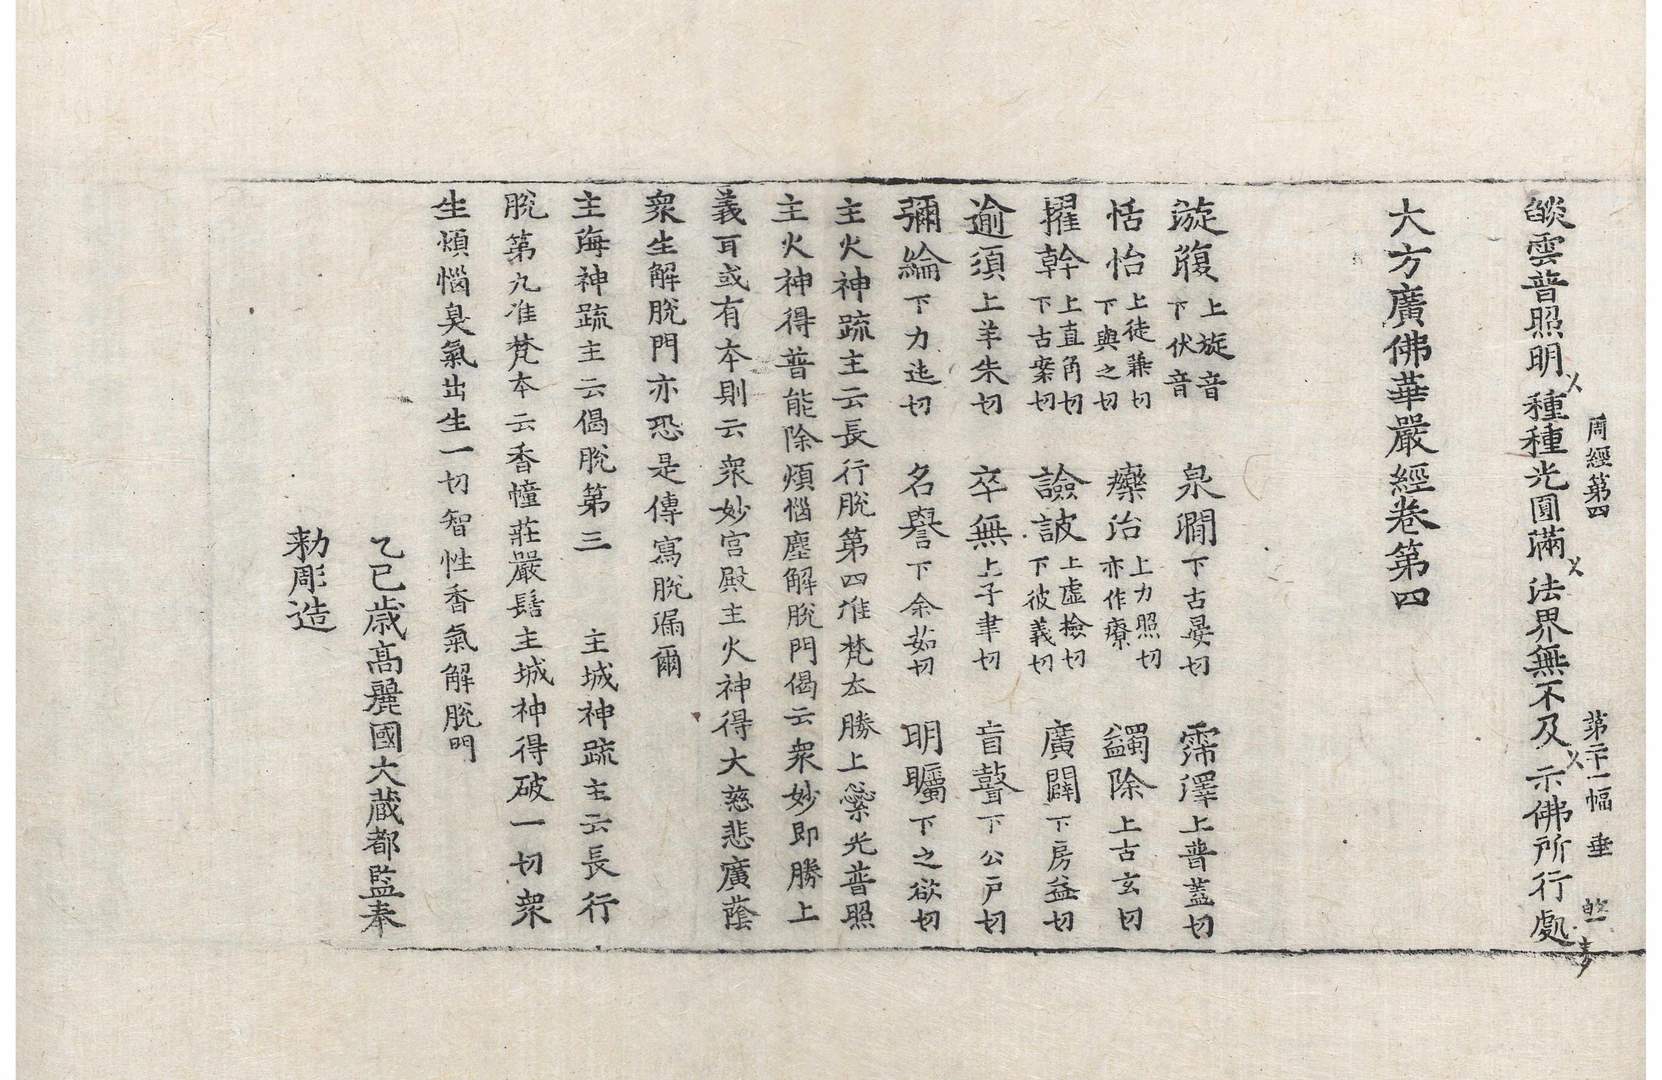 周經第四 第二十一幅 垂
𦦨雲普照明 種種光圓滿 法界無不及 示佛所行處
大方廣佛華嚴經卷第四
漩澓 上旋音下伏音 泉㵎 下古晏切 霈澤 上普蓋切
恬怡 上徒兼切下與之切 療治 上力照切亦作療 蠲除 上古玄切
擢幹 上直角切下古案切 譣詖 上虛檢切下彼義切 廣闢 下房益切
逾須 上羊朱切 卒無 上子聿切 盲瞽 下公戶切
彌綸 下力迍切 名譽 下余茹切 明矚 下之欲切
主火神䟽主云長行脫第四准梵本勝上蘂光普照
主火神得普能除煩惱塵解脫門偈云衆妙即勝上
義耳或有本則云衆妙宮殿主火神得大慈悲廣蔭
衆生解脫門亦恐是傳寫脫漏爾
主海神䟽主云偈脫第三 主城神䟽主云長行
脫第九准梵本云香幢莊嚴髻主城神得破一切衆
生煩惱臭氣出生一切智性香氣解脫門
乙巳歲高麗國大藏都監奉
勅彫造